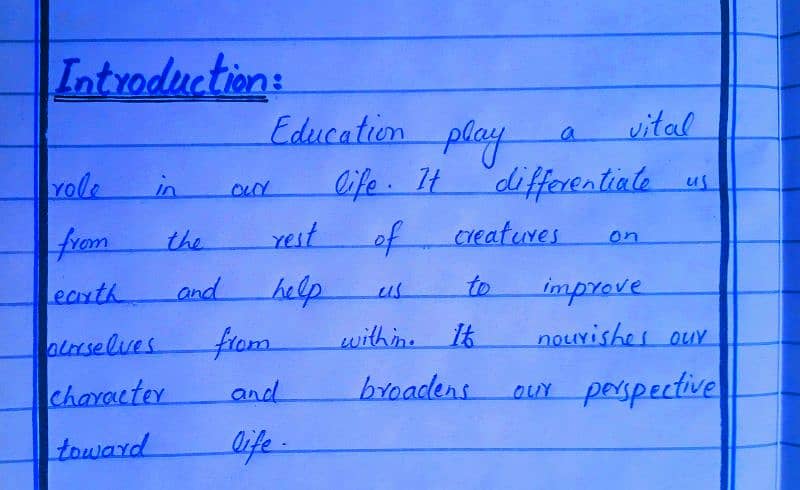 Introduction:
Education play a vital
role in our life. It differentiate us
from the rest of creatures on
earth and help us to improve
ourselves from within. It nourishes our
character and broadens our perspective
toward life.